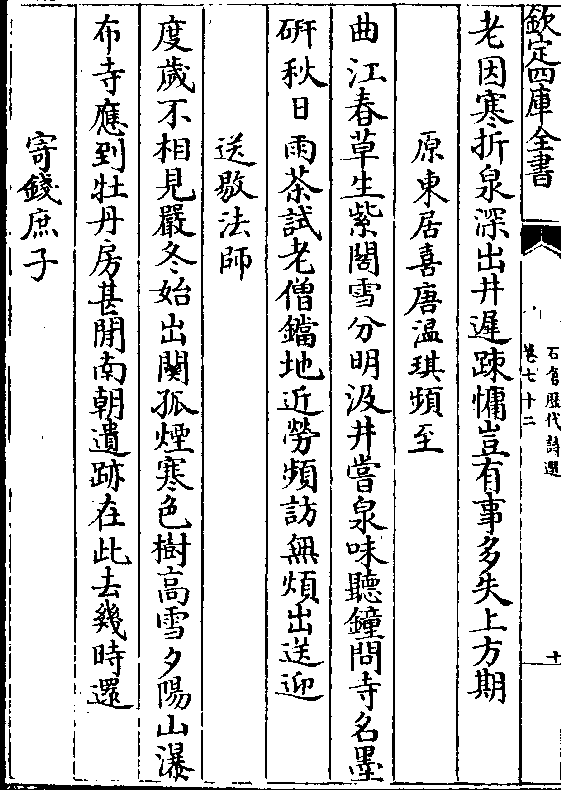 欽定四庫全書
石倉歷代詩選
卷七十二
十
老因寒折泉深出井遲疎慵豈有事多失上方期
原東居喜唐温琪頻至
曲江春草生紫閣雪分明汲井嘗泉味聽鐘問寺名墨
研秋日雨茶試老僧鐺地近勞頻訪無煩出送迎
送敡法師
度歲不相見嚴冬始出關孤煙寒色樹高雪夕陽山瀑
布寺應到牡丹房甚閒南朝遺跡在此去幾時還
寄錢庶子